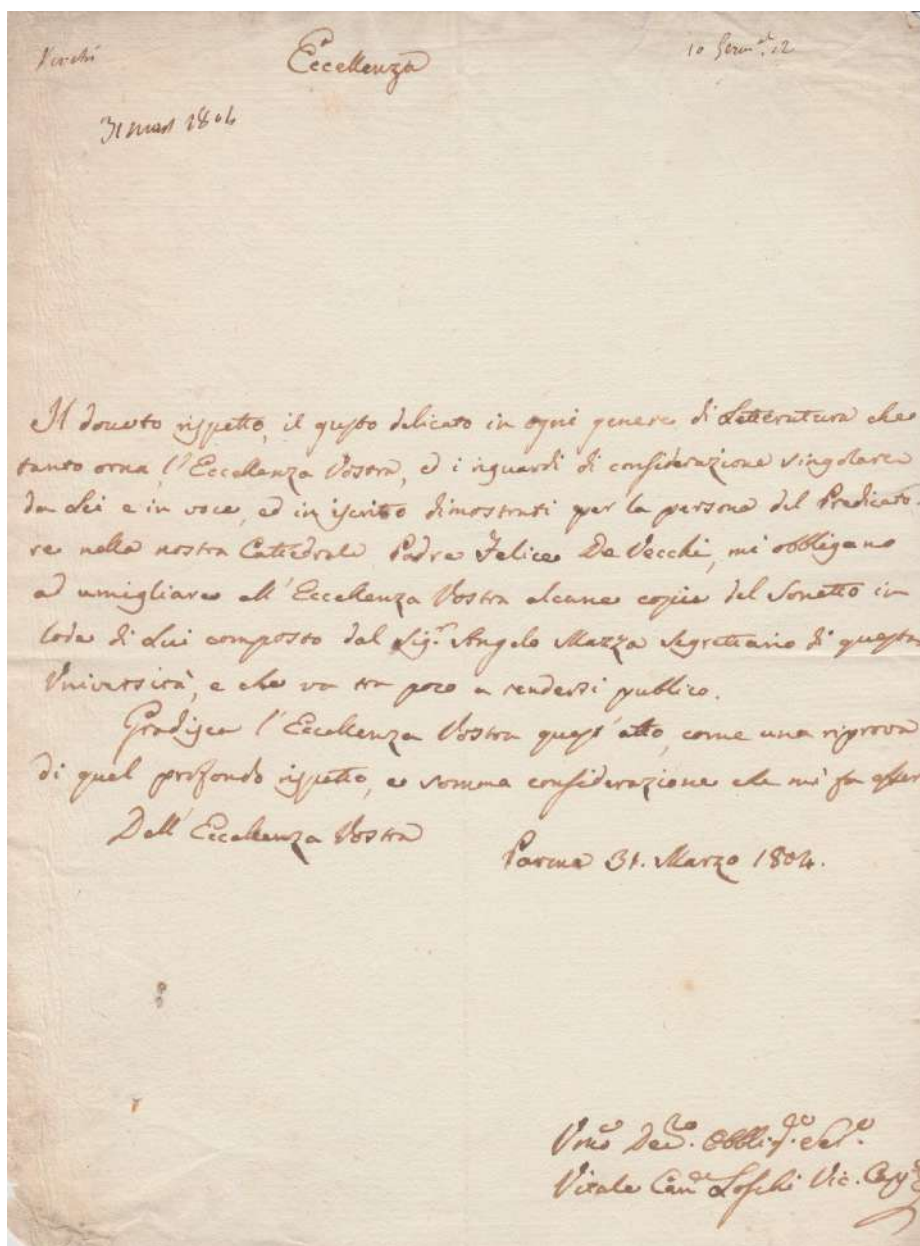 Vecchi
Eccellenza
10 Germ.al 12
31 mars 1804
Il dovuto rispetto, il gusto delicato in ogni genere di Letteratura che
tanto orna l'Eccellenza Vostra, ed i riguardi di considerazione singolare
da Lei e in voce, ed in iscritto dimostrati per la persona del Predicato
re nella nostra Cattedrale Padre Felice De Vecchi, mi obbligano
ad umigliare all'Eccellenza Vostra alcune copie del Sonetto in
lode di Lui composto dal Sig.r Angelo Mazza Segrettario di questa
Università, e che va tra poco a rendersi publico.
Gradisca l'Eccellenza Vostra quest'atto, come una riprova
di quel profondo rispetto, e somma considerazione che mi fa esser
Dell'Eccellenza Vostra
Parma 31. Marzo 1804.
Um.o Dev.mo Obbli.mo Ser.e
Vitale Can.co Loschi Vic.